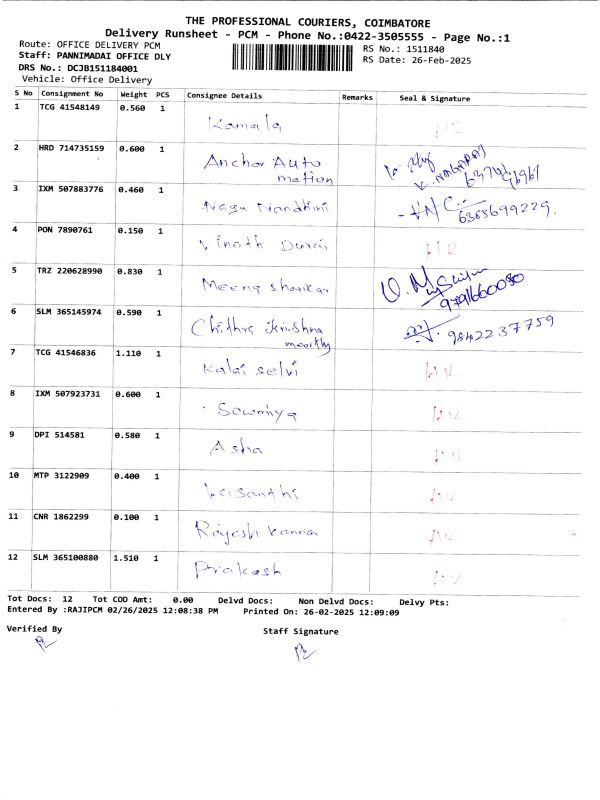 THE PROFESSIONAL COURIERS, COIMBATORE
Delivery Runsheet - PCM - Phone No.:0422-3505555 - Page No.:1
Route: OFFICE DELIVERY PCM
Staff: PANNIMADAI OFFICE DLY
DRS No.: DCJB151184001
Vehicle: Office Delivery
RS No.: 1511840
RS Date: 26-Feb-2025
S No Consignment No Weight PCS Consignee Details Remarks Seal & Signature
1 TCG 41548149 0.560 1 Kamala
2 HRD 714735159 0.600 1 Anchor Auto
motion
3 IXM 507883776 0.460 1 Nagu Nandhini 6385699229
4 PON 7890761 0.150 1 Vinoth
5 TRZ 220628990 0.830 1 Meena Shankar 9791660080
6 SLM 365145974 0.590 1 Chithra Krishna 9842237759
moorthy
7 TCG 41546836 1.110 1 Kalai selvi
8 IXM 507923731 0.600 1 Sowmiya
9 DPI 514581 0.580 1 Asha
10 MTP 3122909 0.400 1 Vasanthi
11 CNR 1862299 0.100 1 Rajesh Kanna
12 SLM 365100880 1.510 1 Prakash
Tot Docs: 12 Tot COD Amt: 0.00 Delvd Docs: Non Delvd Docs: Delvy Pts:
Entered By :RAJIPCM 02/26/2025 12:08:38 PM Printed On: 26-02-2025 12:09:09
Verified By Staff Signature